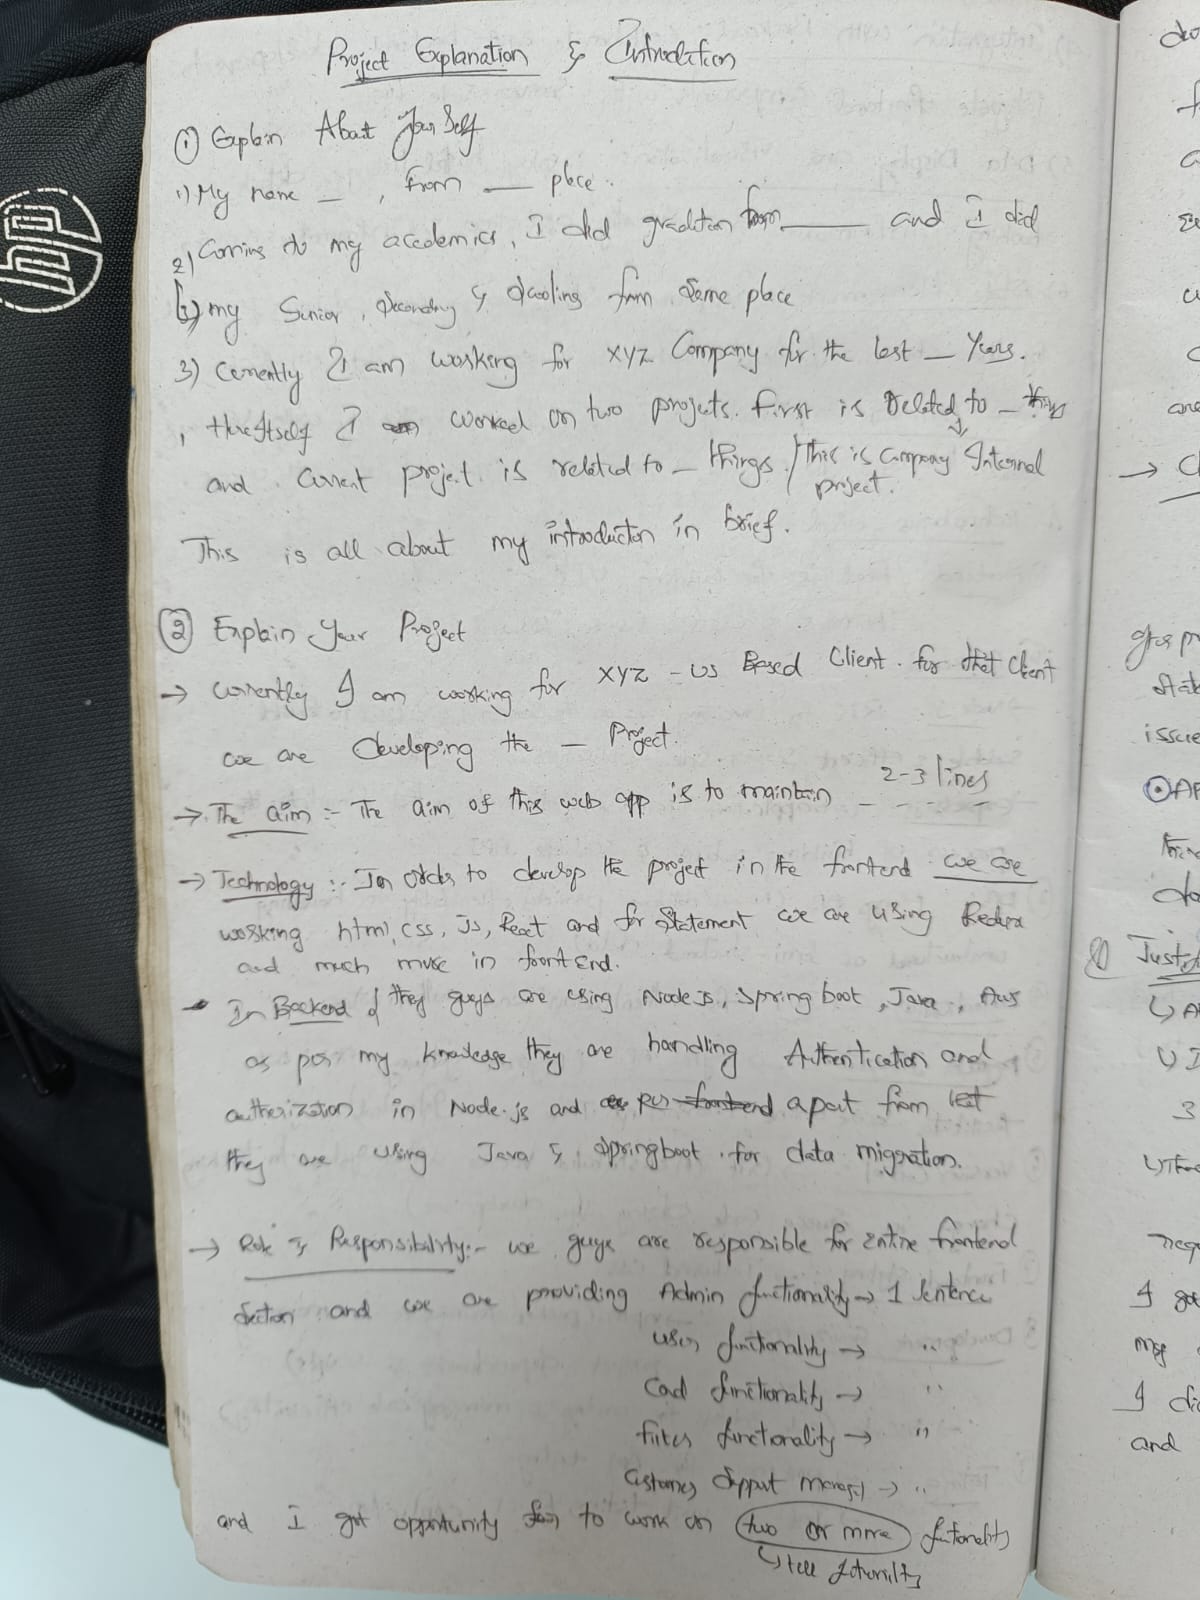 Project Explanation & Introduction
① Explain About Your Self
1) My name _ , from __ place.
2) Coming to my academics, I did gradution from ____ and I did
my Senior, Secondry & schooling from Same place
3) Currently I am working for XYZ Company for the last _ Years.
, there itself I worked on two projects. first is Related to _
and current project is related to _ things. / This is Company Internal
project.
This is all about my introduction in brief.
② Explain Your Project
→ Currently I am working for XYZ - US Based Client. for that client
we are Developing the _ Project.
→ The aim :- The aim of this web app is to maintain _ 2-3 lines
→ Technology :- In order to develop the project in the frontend we are
working html, css, Js, React and for Statement we are using Redux
and much more in front End.
In Backend they guys are using Node Js, Spring boot, Java, Aws
as per my knowledge they are handling Authentication and
autherization in Node.js and apart from
they are using Java & springboot for data migration.
→ Role & Responsibility:- we guys are responsible for entire frontend
section and we are providing Admin functionality → 1 Sentence
user functionality → "
Card functionality → "
filter functionality → "
Customer Support → "
and I got opportunity to work on two or more functionality
hp
→
and
issue